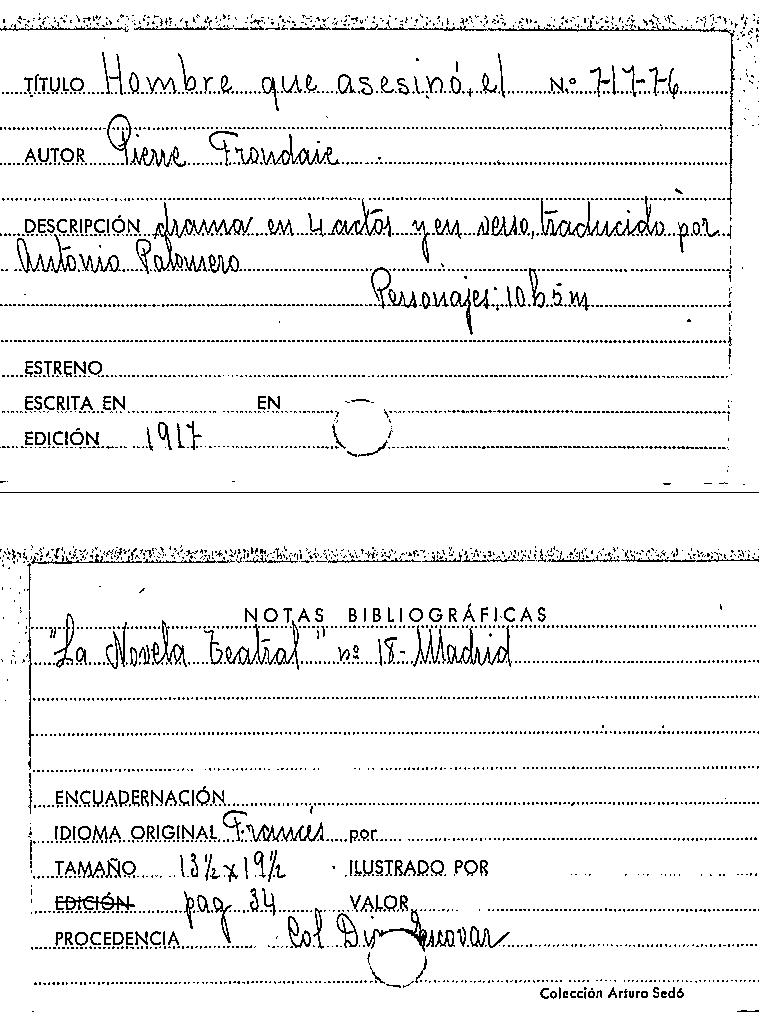 TÍTULO Hombre que asesinó, el N.º 7-17-76
AUTOR Pierre Frondaie
DESCRIPCIÓN drama en 4 actos y en verso, traducido por
Antonio Palomero
Personajes: 10 h 5 m
ESTRENO
ESCRITA EN EN
EDICIÓN 1917
NOTAS BIBLIOGRÁFICAS
"La Novela Teatral" nº 18- Madrid
ENCUADERNACIÓN
IDIOMA ORIGINAL Francés por
TAMAÑO 13½ x 19½ ILUSTRADO POR
EDICIÓN pag 34 VALOR
PROCEDENCIA Col
Colección Arturo Sedó